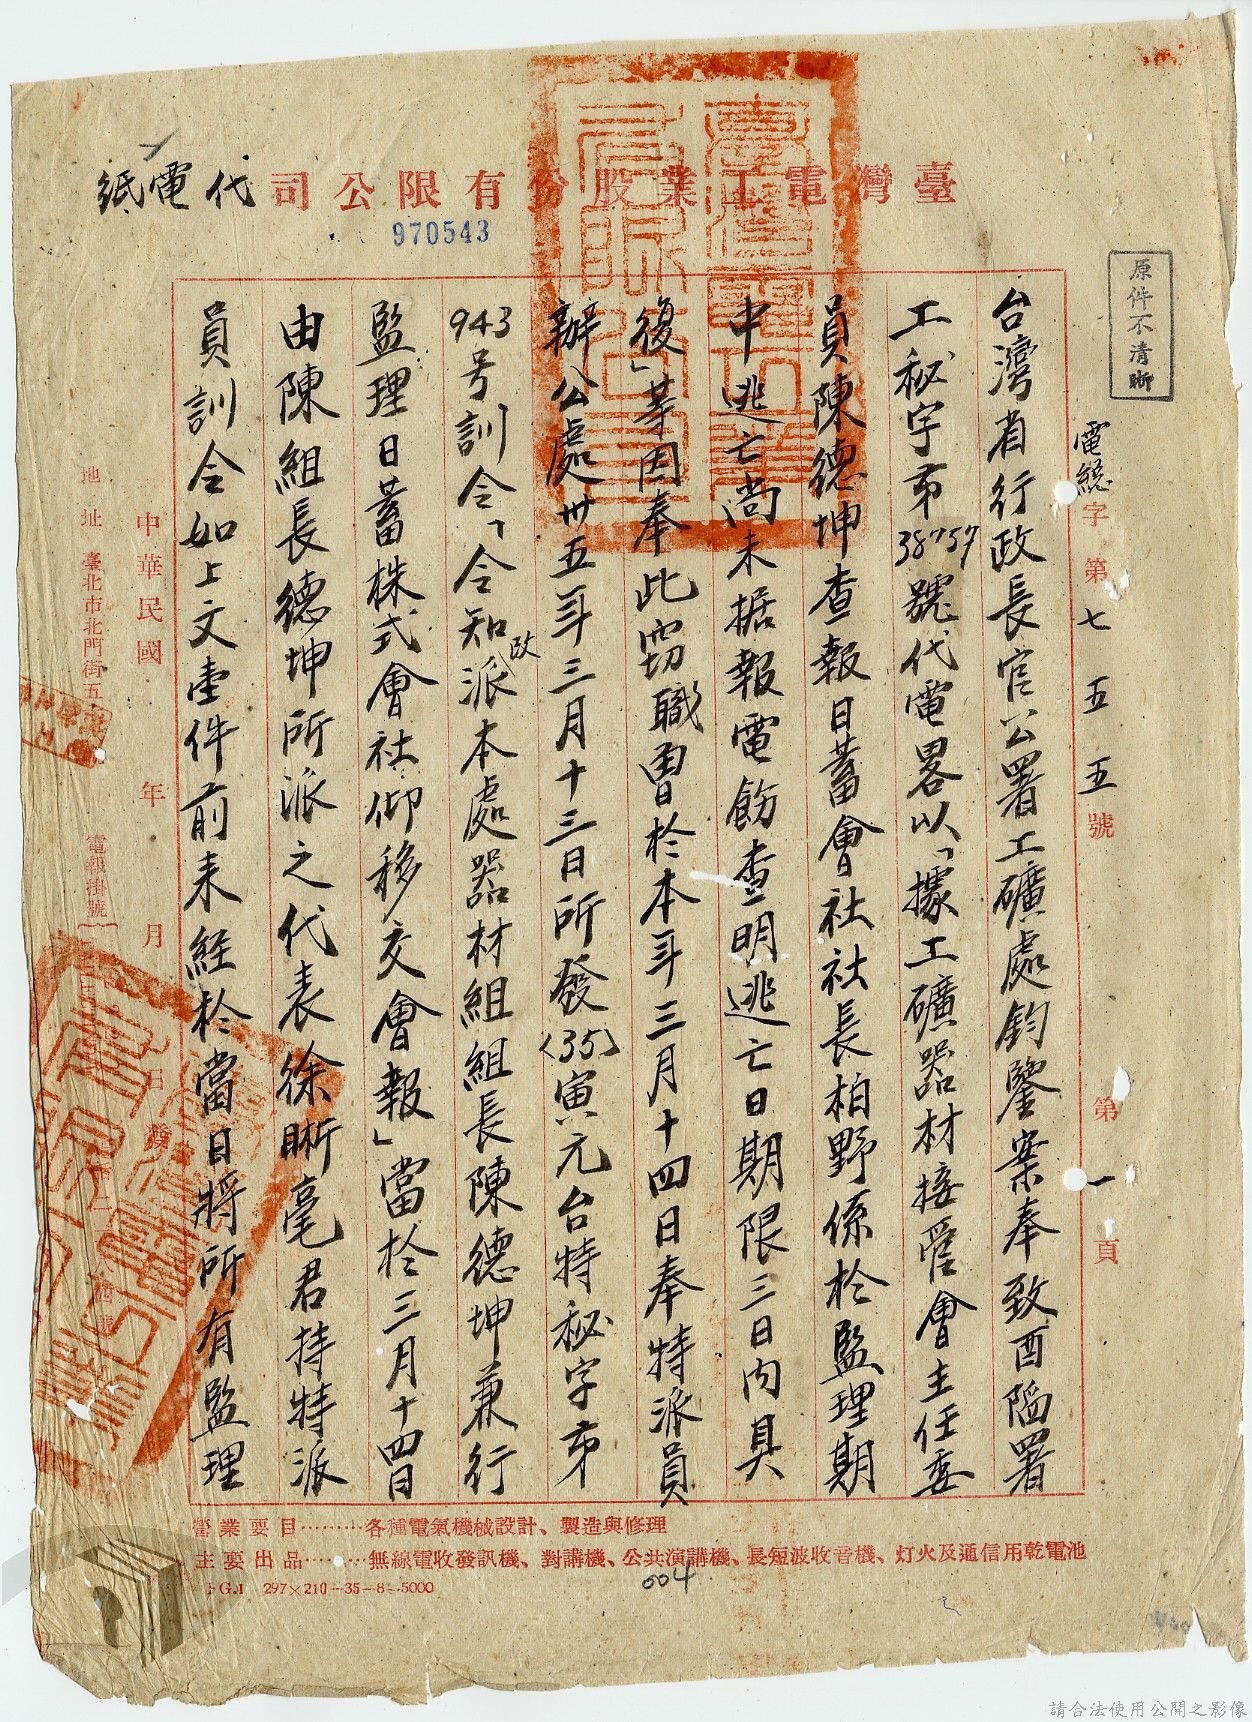 臺灣電工業股份有限公司代電紙
970543
原件不清晰
電總字第七五五號 第一頁
台灣省行政長官公署工礦處鈞鑒案奉致酉陷署
工秘字第38757號代電畧以「據工礦器材接管會主任委
員陳德坤查報日蓄會社社長柏野係於監理期
中逃亡尚未据報電飭查明逃亡日期限三日内具
復」等因奉此窃職曾於本年三月十四日奉特派員
辦公處卅五年三月十三日所發(35)寅元台特秘字第
943号訓令「令知改派本處器材組組長陳德坤兼行
監理日蓄株式會社仰移交會報」當於三月十四日
由陳組長德坤所派之代表徐晰亳君持特派
員訓令如上文壹件前来經於當日將所有監理
中華民國 年 月 日發
地址 臺北市北門街五 電報掛號
營業要目………各種電氣機械設計、製造與修理
主要出品………無線電收發訊機、對講機、公共演講機、長短波收音機、灯火及通信用乾電池
F.G.1 297×210-35-8-5000
004
請合法使用公開之影像